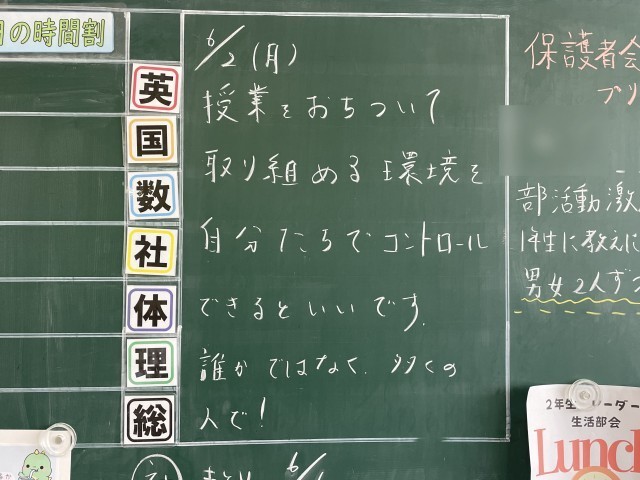 の時間割
英
国
数
社
体
理
総
6/2(月)
授業をおちついて
取り組める環境を
自分たちでコントロール
できるといいです.
誰かではなく、多くの
人で!
保護者会
プリ
部活動激
1年生に教えに
男女2人ずつ
2年生リーダー
生活部会
Lunch